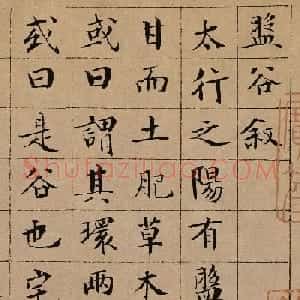 盤谷叙
太行之陽有盤
甘而土肥草木
或曰謂其環兩
或曰是谷也宅